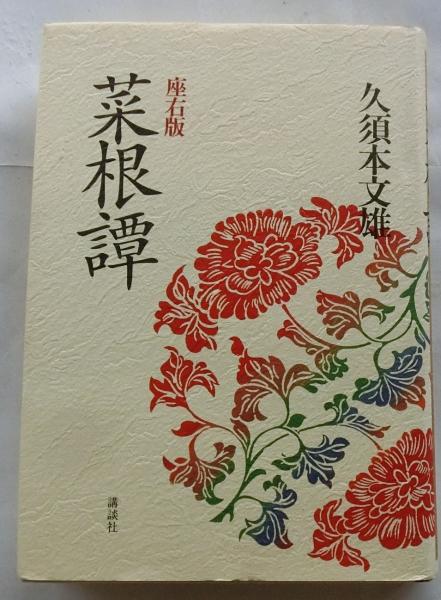 久須本文雄
座右版
菜根譚
講談社